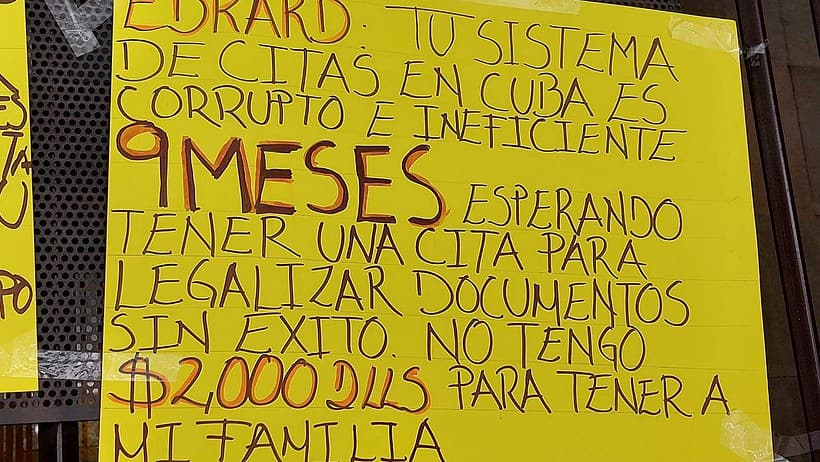 EBRARD. TU SISTEMA
DE CITAS EN CUBA ES
CORRUPTO E INEFICIENTE
9 MESES ESPERANDO
TENER UNA CITA PARA
LEGALIZAR DOCUMENTOS
SIN EXITO. NO TENGO
$2,000 DLLS PARA TENER A
MI FAMILIA